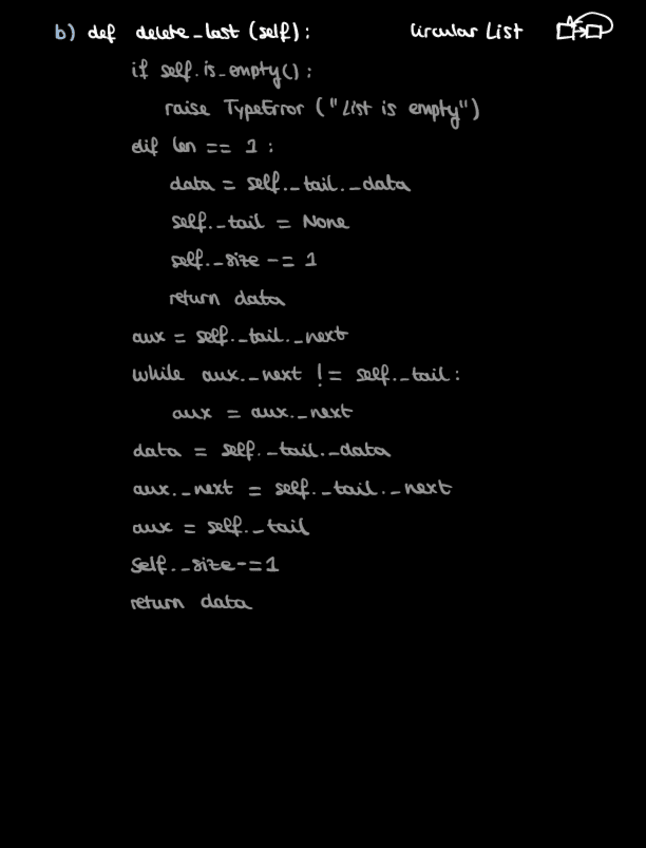 b) def delete_last (self): Circular List
if self.is_empty():
raise TypeError ("List is empty")
elif len == 1:
data = self._tail._data
self._tail = None
self._size -= 1
return data
aux = self._tail._next
while aux._next != self._tail:
aux = aux._next
data = self._tail._data
aux._next = self._tail._next
aux = self._tail
self._size -= 1
return data